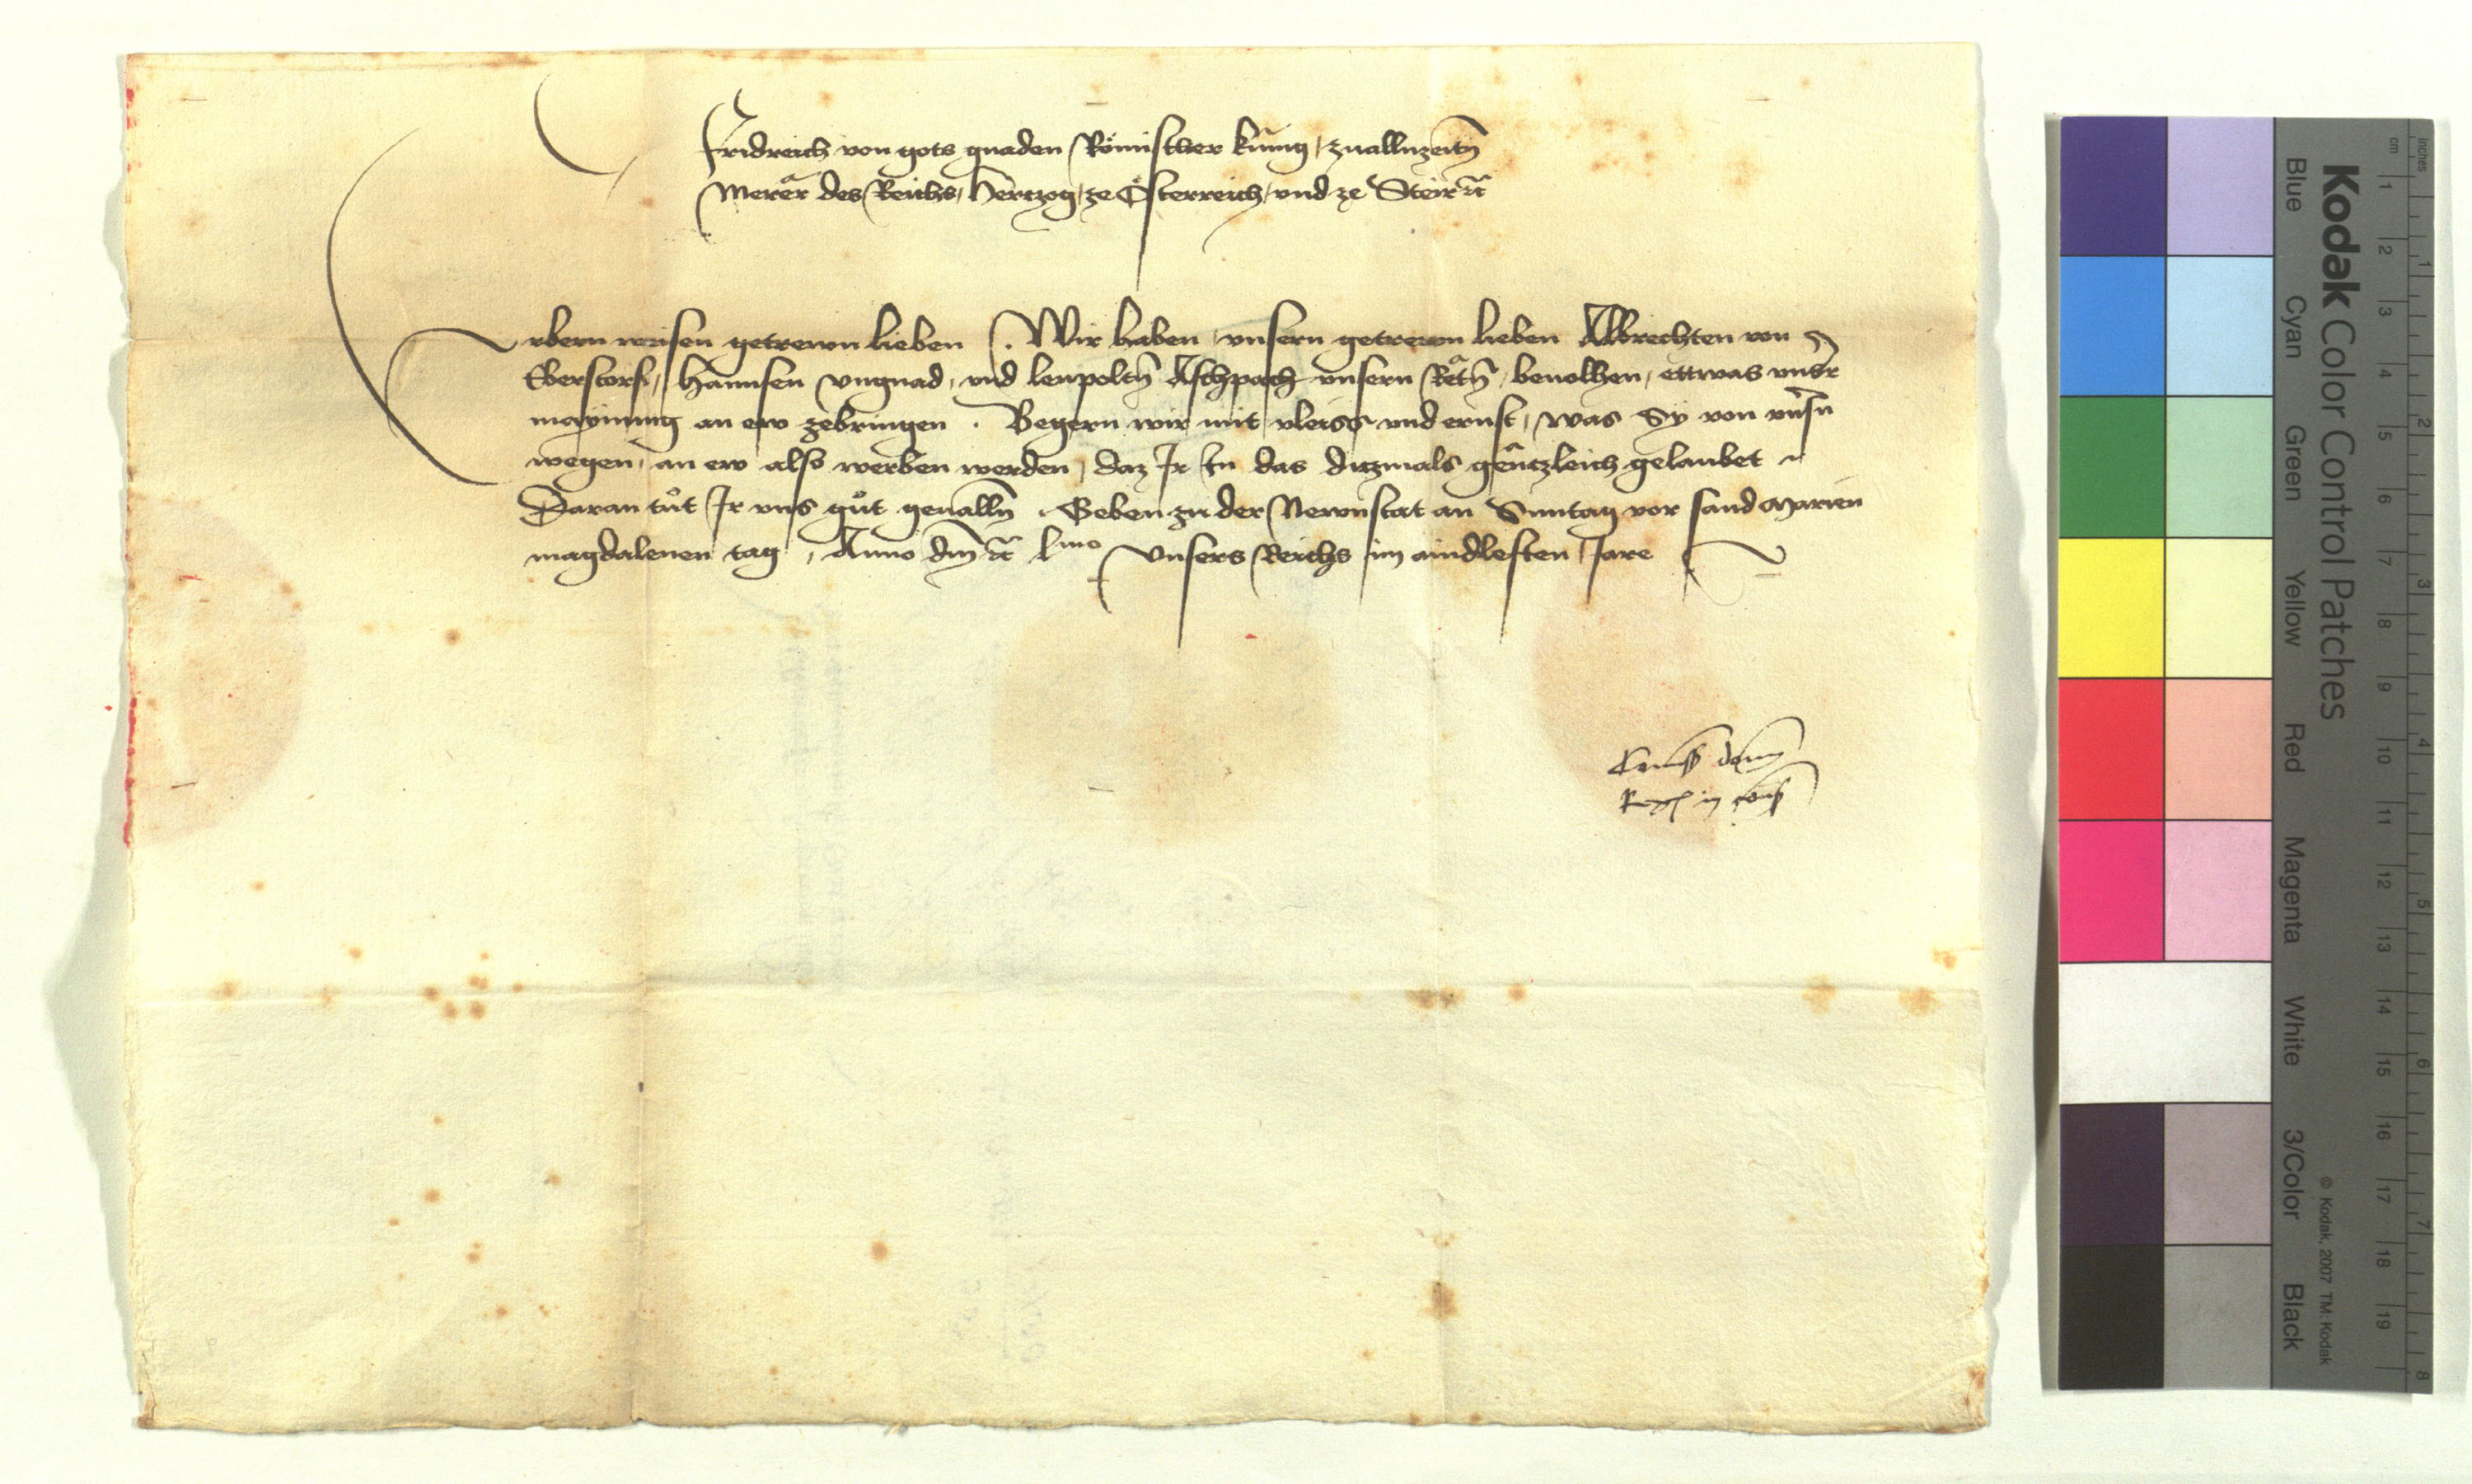 Fridreich von gots gnaden Römischer kunig, zuallnzeitn
Merer des Reichs, Hertzog, ze Österreich, vnd ze Steir etc
Erbern weisen getrewn lieben. Wir haben, vnsern getrewn lieben Albrechten von
Eberstorf, Hannsen Vngnad, vnd leupoltn Aschpach vnsern Retn, beuolhen, ettwas vnsr
maynung an ew zebringen. Begern wir mit vleiss vnd ernst, was Sy von vnsn
wegen, an ew also werben werden, daz Ir In das ditzmals gentzleich gelaubet
Daran tůt Ir vns gůt geualln. Geben zu der Newnstat an Sunntag vor sand Marien
magdalenen tag, Anno dm etc lmo Vnsers Reichs im aindleften Jare
Comiss domi
Reg in cons
Kodak Color Control Patches
Blue Cyan Green Yellow Red Magenta White 3/Color Black
© Kodak, 2007 TM: Kodak
cm 1 2 3 4 5 6 7 8 9 10 11 12 13 14 15 16 17 18 19
Inches 1 2 3 4 5 6 7 8